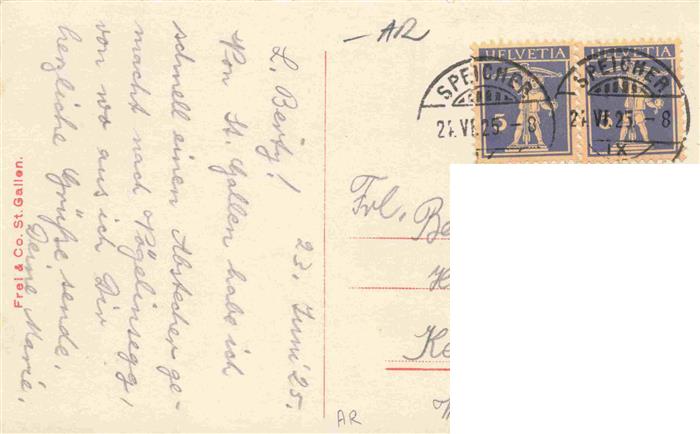 23. Juni 25.
L. Berty!
Von St. Gallen habe ich
schnell einen Abstecher ge-
macht nach Vögelinsegg,
von wo aus ich Dir
herzliche Grüße sende.
Deine Marie.
Frei & Co. St. Gallen.
– AR
HELVETIA
HELVETIA
SPEICHER
SPEICHER
5
VI.25.-8
VI.25.-8
Frl. Be
H
Ke
AR